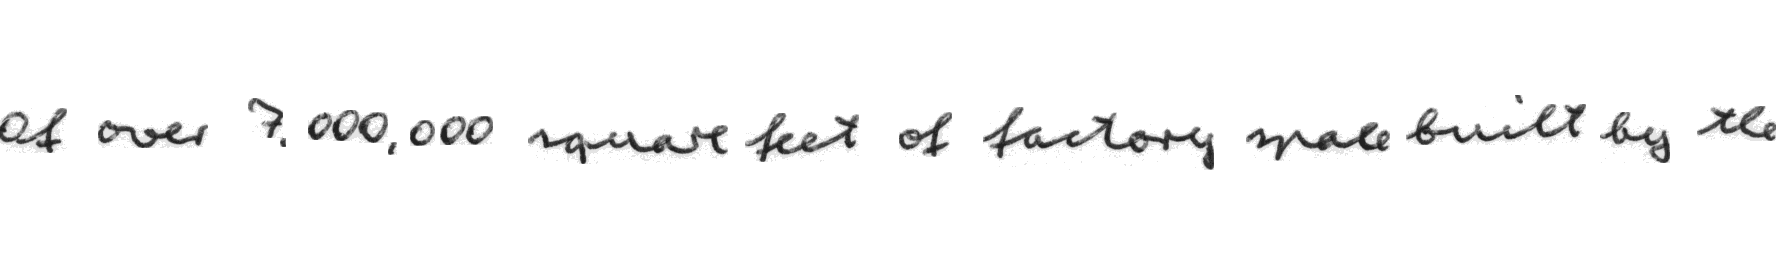 Of over 7.000,000 square feet of factory space built by the